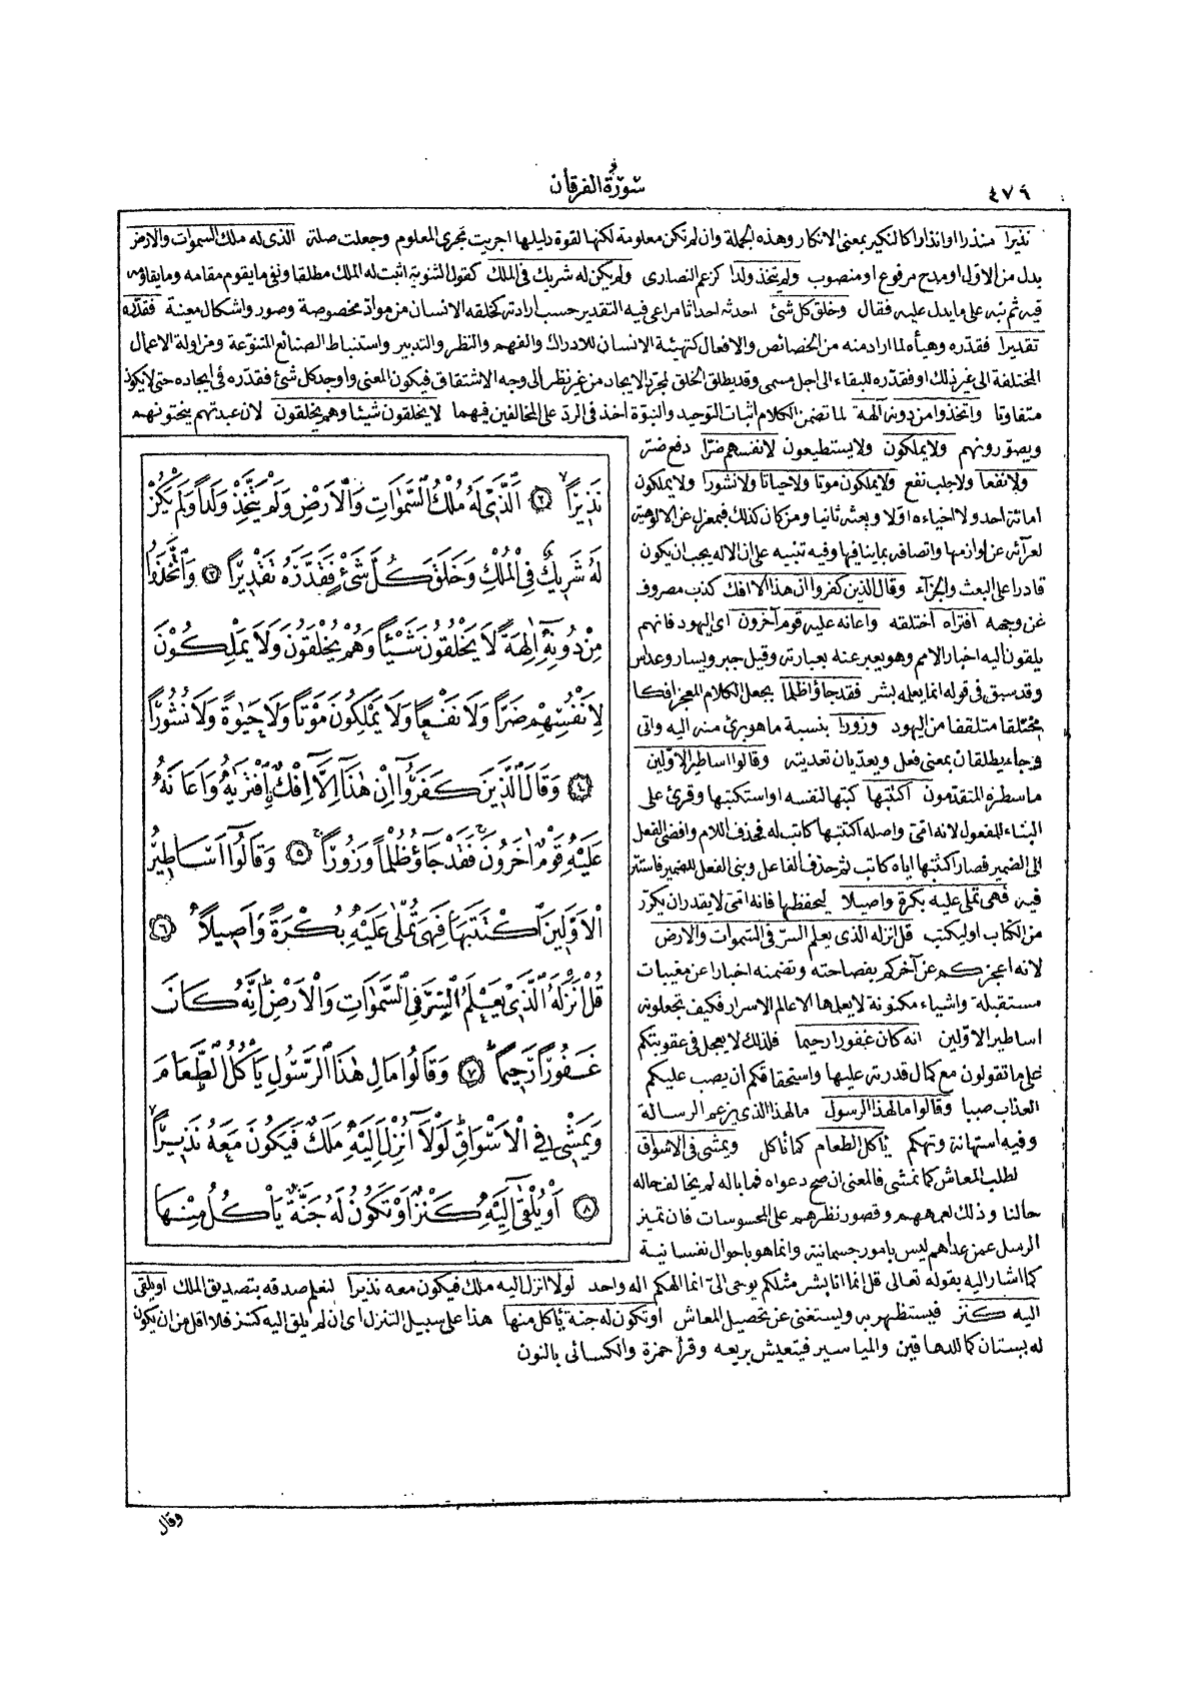 ٤٧٩
سورة الفرقان
نذيرا منذرا او انذارا كالنكير بمعنى الانكار وهذه الجملة وان لم تكن معلومة لكنها لقوة دليلها اجريت مجرى المعلوم وجعلت صلة الذى له ملك السموات والارض
بدل من الاول او مدح مرفوع او منصوب ولم يتخذ ولدا كزعم النصارى ولم يكن له شريك فى الملك كقول الثنوية اثبت له الملك مطلقا ونفى ما يقوم مقامه وما يقاومه
فيه ثم نبه على ما يدل عليه فقال وخلق كل شئ احدثه احداثا مراعى فيه التقدير حسب ارادته كخلقه الانسان من مواد مخصوصة وصور واشكال معينة فقدره
تقديرا فقدره وهيأه لما اراد منه من الخصائص والافعال كتهيئة الانسان للادراك والفهم والنظر والتدبير واستنباط الصنائع المتنوعة ومزاولة الاعمال
المختلفة الى غير ذلك او فقدره للبقاء الى اجل مسمى وقد يطلق الخلق لمجرد الايجاد من غير نظر الى وجه الاشتقاق فيكون المعنى واوجد كل شئ فقدره فى ايجاده حتى لا يكون
متفاوتا واتخذوا من دونه آلهة لما تضمن الكلام اثبات التوحيد والنبوة اخذ فى الرد على المخالفين فيهما لا يخلقون شيئا وهم يخلقون لان عبدتهم ينحتونهم
ويصورونهم ولا يملكون ولا يستطيعون لانفسهم ضرا دفع ضر
ولا نفعا ولا جلب نفع ولا يملكون موتا ولا حياتا ولا نشورا ولا يملكون
اماتة احد ولا احياءه اولا وبعثه ثانيا ومن كان كذلك فبمعزل عن الالوهية
لعرائه عن لوازمها واتصافه بما ينافيها وفيه تنبيه على ان الاله يجب ان يكون
قادرا على البعث والجزآء وقال الذين كفروا ان هذا الا افك كذب مصروف
عن وجهه افتراه اختلقه واعانه عليه قوم آخرون اى اليهود فانهم
يلقون اليه اخبار الامم وهو يعبر عنه بعبارته وقيل جبر ويسار وعداس
وقد سبق فى قوله انما يعلمه بشر فقد جاؤا ظلما بجعل الكلام المعجز افكا
مختلقا متلقفا من اليهود وزورا بنسبة ما هو برئ منه اليه واتى
وجاء يطلقان بمعنى فعل ويعديان تعديته وقالوا اساطير الاولين
ما سطره المتقدمون اكتتبها كتبها لنفسه او استكتبها وقرئ على
البناء للمفعول لانه امى واصله اكتتبها كاتب له فحذف اللام وافضى الفعل
الى الضمير فصار اكتتبها اياه كاتب ثم حذف الفاعل وبنى الفعل للضمير فاستتر
فيه فهى تملى عليه بكرة واصيلا ليحفظها فانه امى لا يقدر ان يكرر
من الكتاب او ليكتب قل انزله الذى يعلم السر فى السموات والارض
لانه اعجزكم عن آخركم بفصاحته وتضمنه اخبارا عن مغيبات
مستقبلة واشياء مكنونة لا يعلمها الا عالم الاسرار فكيف تجعلونه
اساطير الاولين انه كان غفورا رحيما فلذلك لا يعجل فى عقوبتكم
على ما تقولون مع كمال قدرته عليها واستحقاقكم ان يصب عليكم
العذاب صبا وقالوا ما لهذا الرسول ما لهذا الذى يزعم الرسالة
وفيه استهانة وتهكم يأكل الطعام كما نأكل ويمشى فى الاسواق
لطلب المعاش كما نمشى فالمعنى ان صح دعواه فما باله لم يخالف حاله
حالنا وذلك لعمههم وقصور نظرهم على المحسوسات فان تميز
الرسل عمن عداهم ليس بامور جسمانية وانما هو باحوال نفسانية
كما اشار اليه بقوله تعالى قل انما انا بشر مثلكم يوحى الى انما الهكم اله واحد لولا انزل اليه ملك فيكون معه نذيرا لنعلم صدقه بتصديق الملك او يلقى
اليه كنز فيستظهر به ويستغنى عن تحصيل المعاش او تكون له جنة يأكل منها هذا على سبيل التنزل اى ان لم يلق اليه كنز فلا اقل من ان يكون
له بستان كما للدهاقين والمياسير فيتعيش بريعه وقرأ حمزة والكسائى بالنون
نَذِيرًا ۙ ٢ اَلَّذِى لَهُ مُلْكُ السَّمٰوَاتِ وَالْاَرْضِ وَلَمْ يَتَّخِذْ وَلَدًا وَلَمْ يَكُنْ
لَهُ شَرِيكٌ فِى الْمُلْكِ وَخَلَقَ كُلَّ شَىْءٍ فَقَدَّرَهُ تَقْدِيرًا ٣ وَاتَّخَذُوا
مِنْ دُونِهِ اٰلِهَةً لَا يَخْلُقُونَ شَيْئًا وَهُمْ يُخْلَقُونَ وَلَا يَمْلِكُونَ
لِاَنْفُسِهِمْ ضَرًّا وَلَا نَفْعًا وَلَا يَمْلِكُونَ مَوْتًا وَلَا حَيٰوةً وَلَا نُشُورًا
٤ وَقَالَ الَّذِينَ كَفَرُوا اِنْ هٰذَا اِلَّا اِفْكٌ افْتَرٰيهُ وَاَعَانَهُ
عَلَيْهِ قَوْمٌ اٰخَرُونَ فَقَدْ جَاؤُ ظُلْمًا وَزُورًا ٥ وَقَالُوا اَسَاطِيرُ
الْاَوَّلِينَ اكْتَتَبَهَا فَهِىَ تُمْلٰى عَلَيْهِ بُكْرَةً وَاَصِيلًا ٦
قُلْ اَنْزَلَهُ الَّذِى يَعْلَمُ السِّرَّ فِى السَّمٰوَاتِ وَالْاَرْضِ اِنَّهُ كَانَ
غَفُورًا رَحِيمًا ٧ وَقَالُوا مَالِ هٰذَا الرَّسُولِ يَأْكُلُ الطَّعَامَ
وَيَمْشِى فِى الْاَسْوَاقِ لَوْلَا اُنْزِلَ اِلَيْهِ مَلَكٌ فَيَكُونَ مَعَهُ نَذِيرًا
٨ اَوْ يُلْقٰى اِلَيْهِ كَنْزٌ اَوْ تَكُونُ لَهُ جَنَّةٌ يَأْكُلُ مِنْهَا
وقال